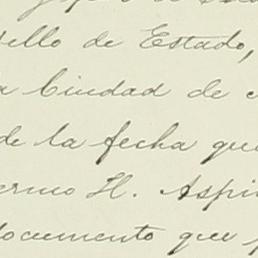 ello de Estado,
a Ciudad de
de la fecha que
ermo H. Aspi
documento que